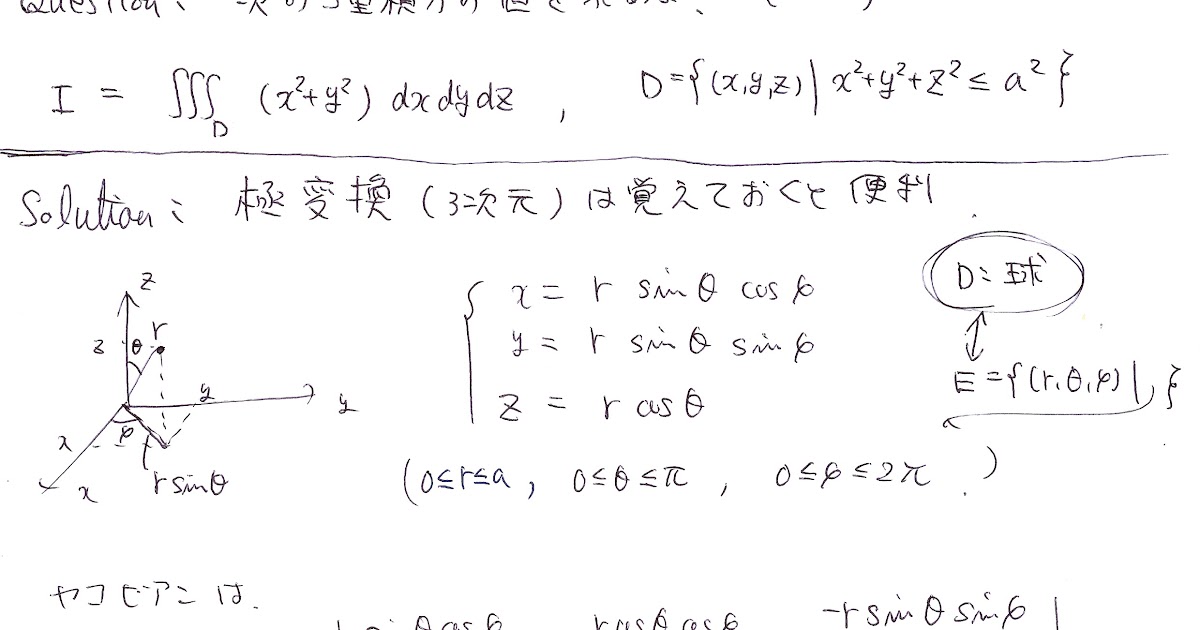 Question: 次の3重積分の値を求めよ.
I = ∭_D (x²+y²) dxdydz , D={(x,y,z)| x²+y²+z² ≤ a²}
Solution: 極変換(3次元)は覚えておくと便利.
z
z θ r
y y
x φ
x r sinθ
x = r sinθ cosφ
y = r sinθ sinφ
z = r cosθ
D: 球
E={(r,θ,φ)| , }
(0≤r≤a, 0≤θ≤π, 0≤φ≤2π.)
ヤコビアンは.
sinθcosφ rcosθcosφ -rsinθsinφ